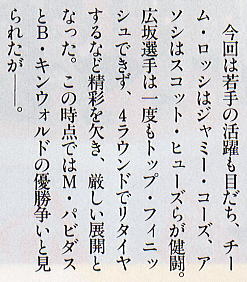 今回は若手の活躍も目だち、チー
ム・ロッシはジャミー・コーズ、ア
ソシはスコット・ヒューズらが健闘。
広坂選手は一度もトップ・フィニッ
シュできず、4ラウンドでリタイヤ
するなど精彩を欠き、厳しい展開と
なった。この時点ではM・パビダス
とB・キンウォルドの優勝争いと見
られたが——。